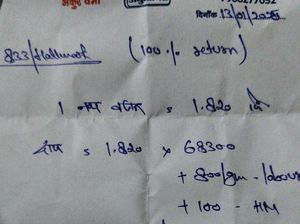 दिनांक 13/01/2025
833/Hallmark (100% return)
1 नथ वजन = 1.820
= 1.820 x 68300
+ 800/gm - labour
+ 100 - HM